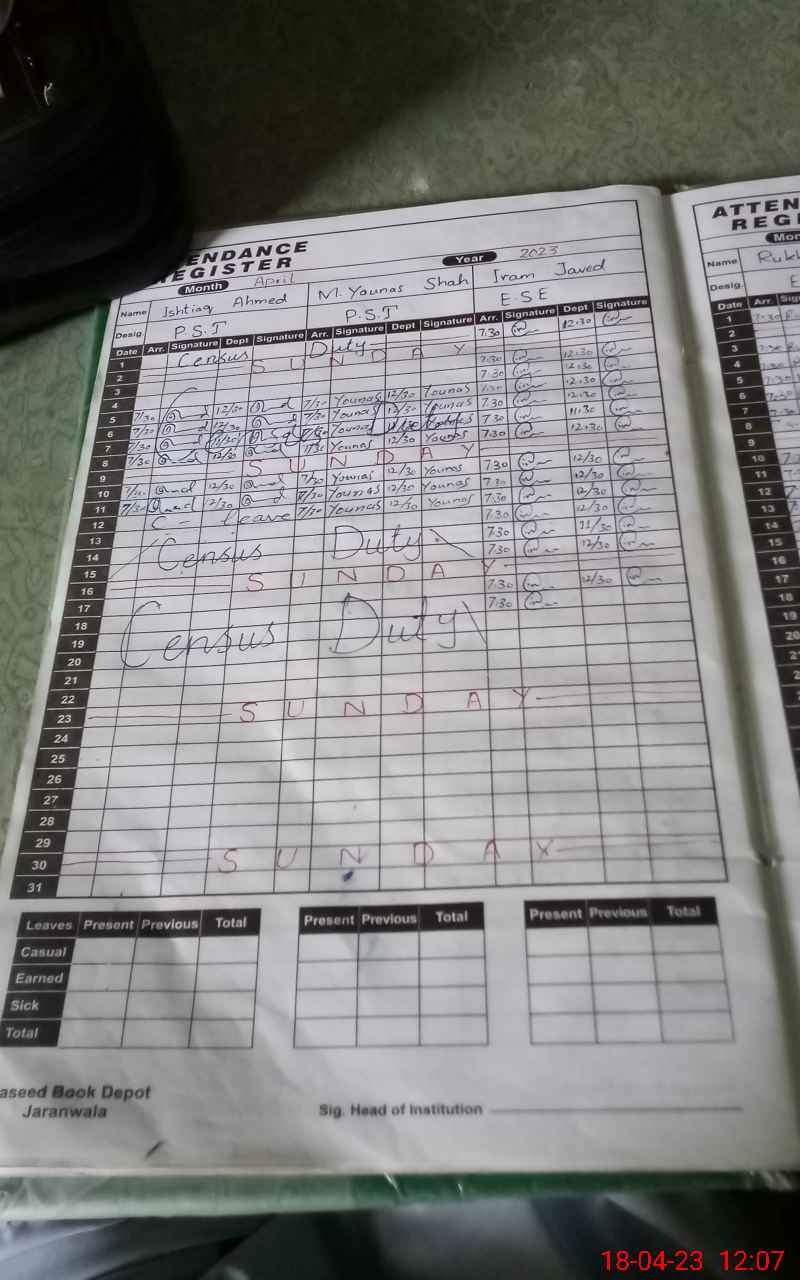 ENDANCE
EGISTER
Month April Year 2023
Name Ishtiaq Ahmed M. Younas Shah Iram Javed
Desig P.S.T P.S.T E.S.E
Date Arr. Signature Dept Signature Arr. Signature Dept Signature Arr. Signature Dept Signature
1 Census Duty 7.30 12.30
2 SUNDAY
3 7.30 12.30
4 7.30 12.30
5 7/30 12/30 7/30 Younas 12/30 Younas 7.30 12.30
6 7/30 12/30 7/30 Younas 12/30 Younas 7.30 12.30
7 7/30 7/30 Younas 7.30 11.30
8 7/30 12/30 7/30 Younas 12/30 Younas 7.30 12.30
9 SUNDAY
10 7/30 12/30 7/30 Younas 12/30 Younas 7.30 12/30
11 7/30 12/30 7/30 Younas 12/30 Younas 7.30 12/30
12 C - leave 7/30 Younas 12/30 Younas 7.30 12/30
13 7.30 12/30
14 Census Duty 7.30 11/30
15 7.30 12/30
16 SUNDAY
17 7.30 12/30
18 7.30
19 Census Duty
20
21
22
23 SUNDAY
24
25
26
27
28
29
30 SUNDAY
31
Leaves Present Previous Total Present Previous Total Present Previous Total
Casual
Earned
Sick
Total
aseed Book Depot
Jaranwala
Sig. Head of Institution
ATTEN
REGI
Mon
Name Rukh
Desig. E
Date Arr. Sign
1 7.30
2
3
4
5
6
7
8
9
10
11
12
13
14
15
16
17
18
19
20
18-04-23 12:07